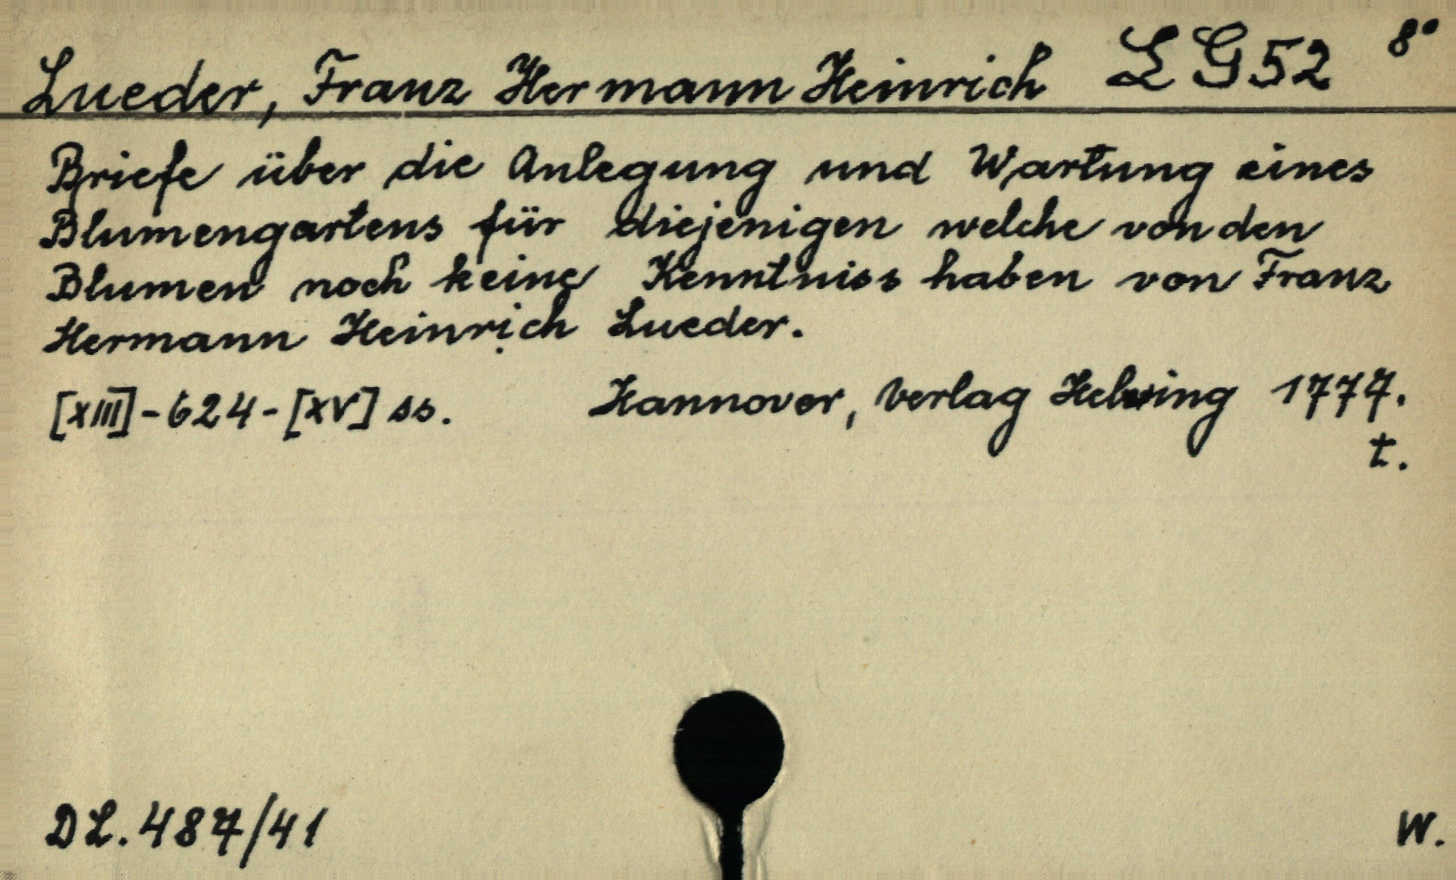 Lueder, Franz Hermann Heinrich LG52 8°
Briefe über die Anlegung und Wartung eines
Blumengartens für diejenigen welche von den
Blumen noch keine Kenntniss haben von Franz
Hermann Heinrich Lueder.
[XIII]-624-[XV] ss. Hannover, Verlag Helwing 1777.
t.
DL. 487/41 W.